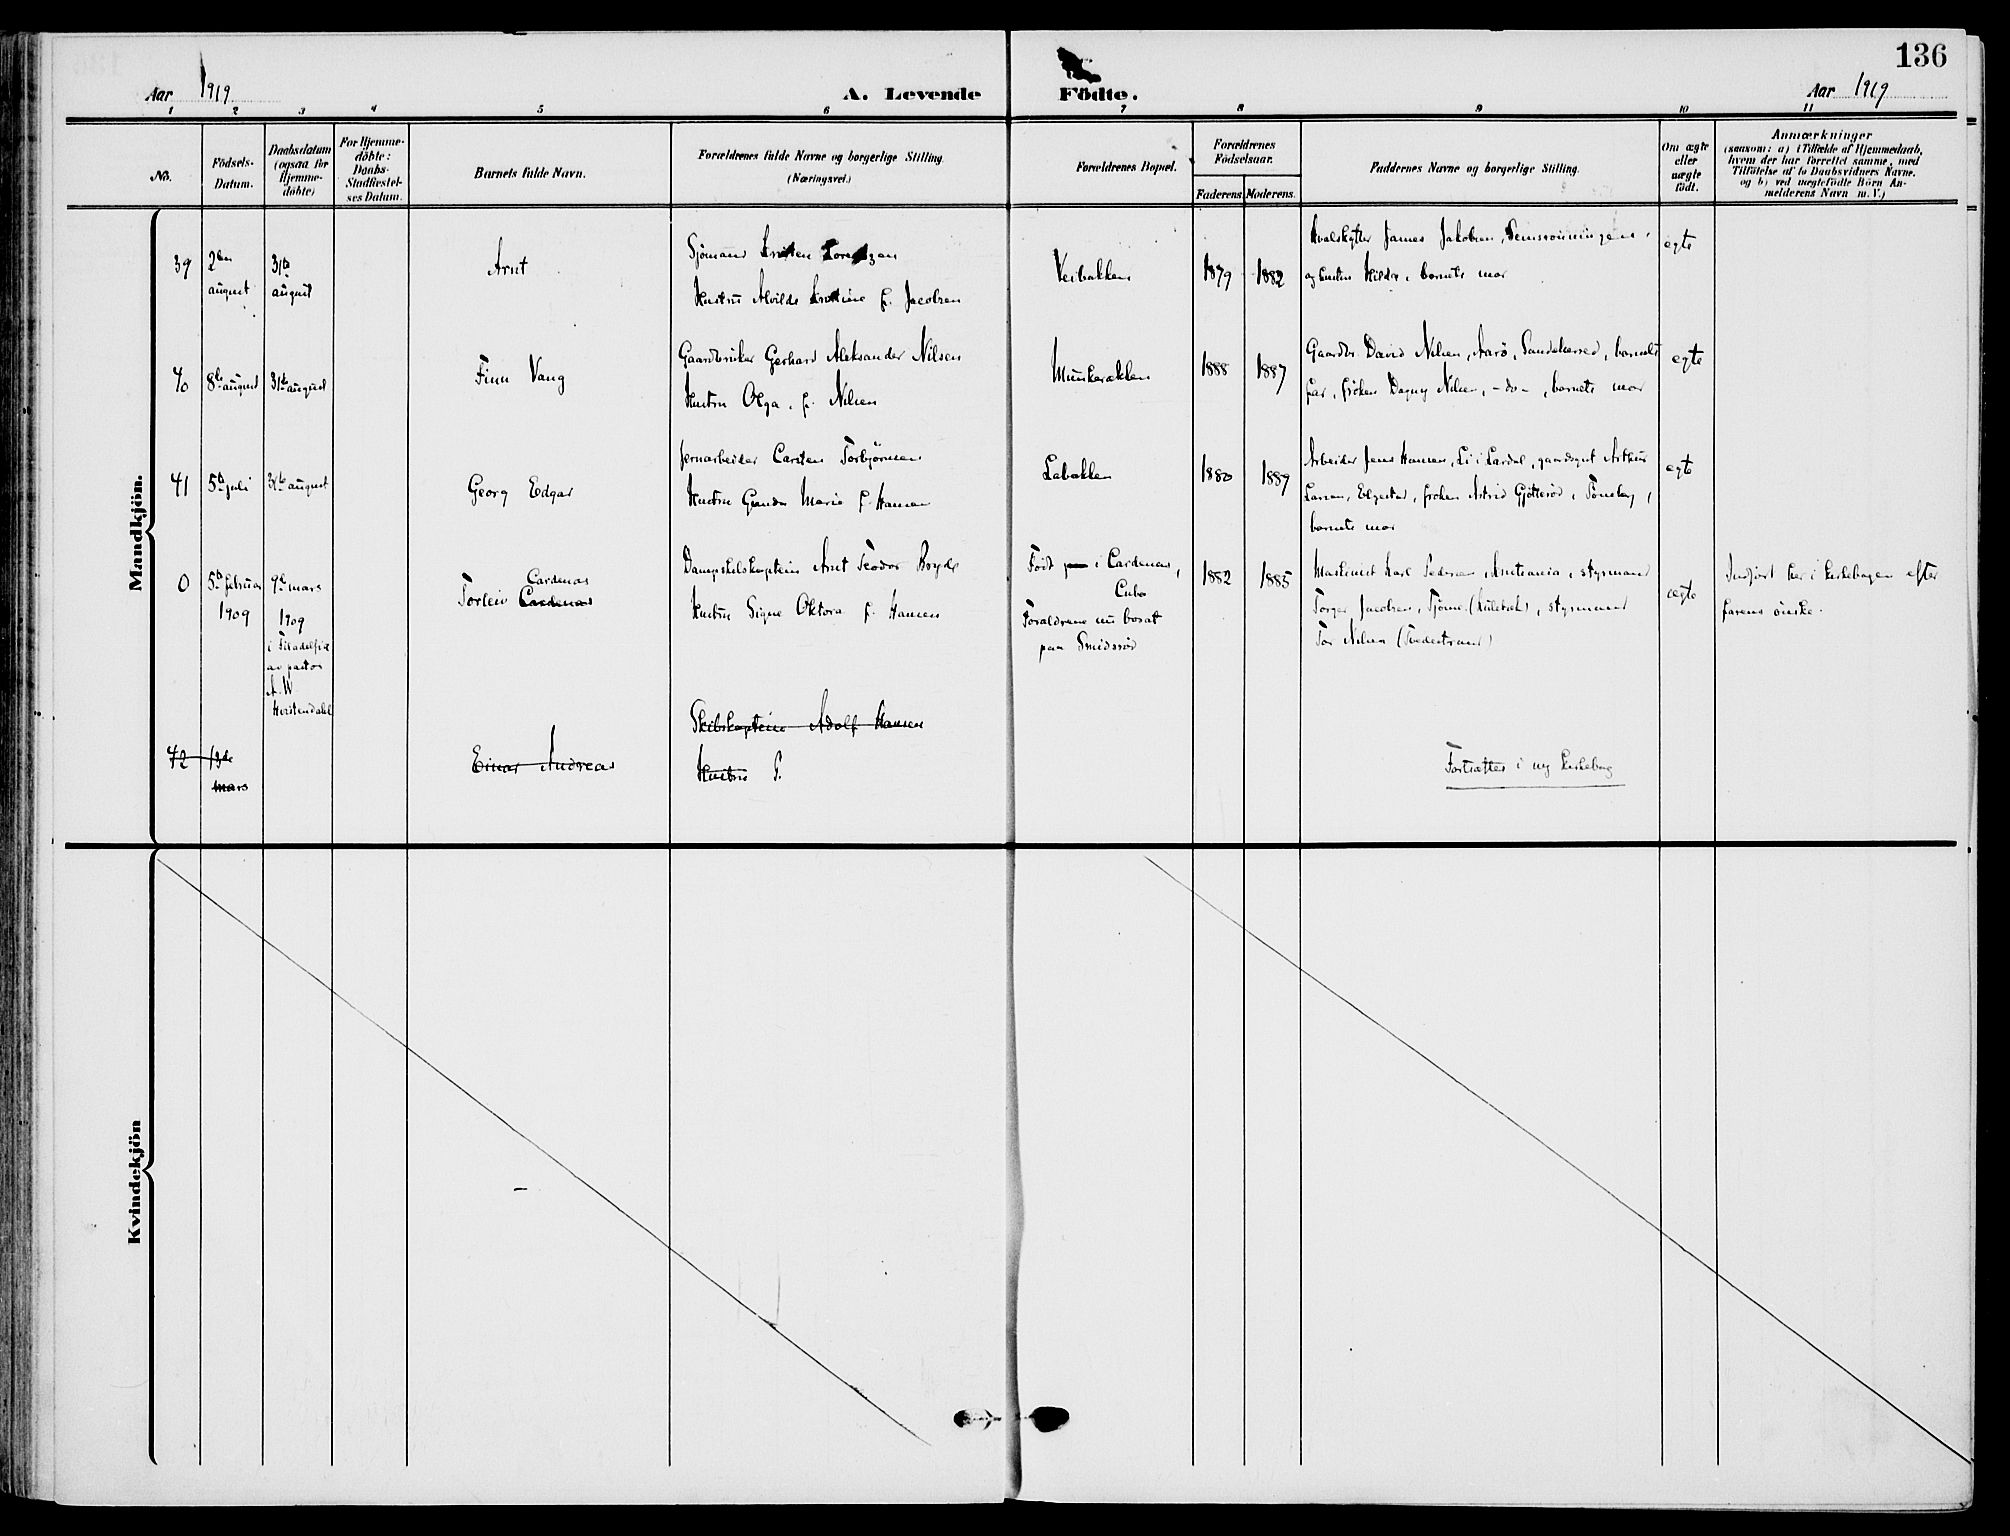 136
Aar 1919
A. Levende Födte.
Aar 1919
1 2 3 4 5 6 7 8 9 10 11
No.
Födsels-
Datum.
Daabsdatum
(ogsaa for
Hjemme-
döbte)
For Hjemme-
döbte:
Daabs-
Stadfæstel-
ses Datum.
Barnets fulde Navn.
Forældrenes fulde Navne og borgerlige Stilling.
(Næringsvei.)
Forældrenes Bopæl.
Forældrenes
Födselsaar.
Faderens. Moderens.
Faddernes Navne og borgerlige Stilling.
Om ægte
eller
uægte
födt.
Anmærkninger
(saasom: a) i Tilfælde af Hjemmedaab,
hvem der har forrettet samme, med
Tilföielse af to Daabsvidners Navne.
og b) ved uægtefödte Börn An-
melderens Navn m. V.)
Mandkjön.
39
2den
august
31te
august
Arnt
Sjömand Kristen Lorentzen
Hustru Alvilde Kristine f. Jacobsen
Veibakken
1879
1882
Hvalskytter James Jakobsen,
og hustru Hilda, barnets mor
egte
40
8de august
31te august
Finn Vang
Gaardbruker Gerhard Aleksander Nilsen
Hustru Olga, f. Nilsen
Munkerekken
1888
1887
Gaardbr. David Nilsen, Aarö, Sandeherred, barnets
far, fröken Dagny Nilsen, - do - , barnets mor
egte
41
5te juli
31te august
Georg Edgar
Jernarbeider Carsten Torbjörnsen
Hustru Gunda Marie f. Hansen
Labakken
1880
1889
Arbeider Jens Hansen, Li i Lardal, gaardsgut Arthur
Larsen, fröken Astrid Gjötterød, Tönsberg,
barnets mor
egte
0
5te februar
1909
9de mars
1909
i Filadelfia
av pastor
A. W.
Torleiv Cardenas
Cardenas
Dampskibskaptein Arnt Teodor Bryde
Hustru Signe Oktora f. Hansen
Födt i Cardenas,
Cuba
Foraldrene nu bosat
paa Smidsröd
1882
1885
Maskinist Karl Pedersen, Kristiania, styrmand
Torger Jacobsen, Tjöme, styrmand
Tor Nilsen (Tvedestrand)
ægte
Indfört her i kirkebogen efter
farens önske.
42
13de
mars
Einar Andreas
Skibskaptein Adolf Hansen
Hustru P.
Fortsættes i ny kirkebog
Kvindekjön